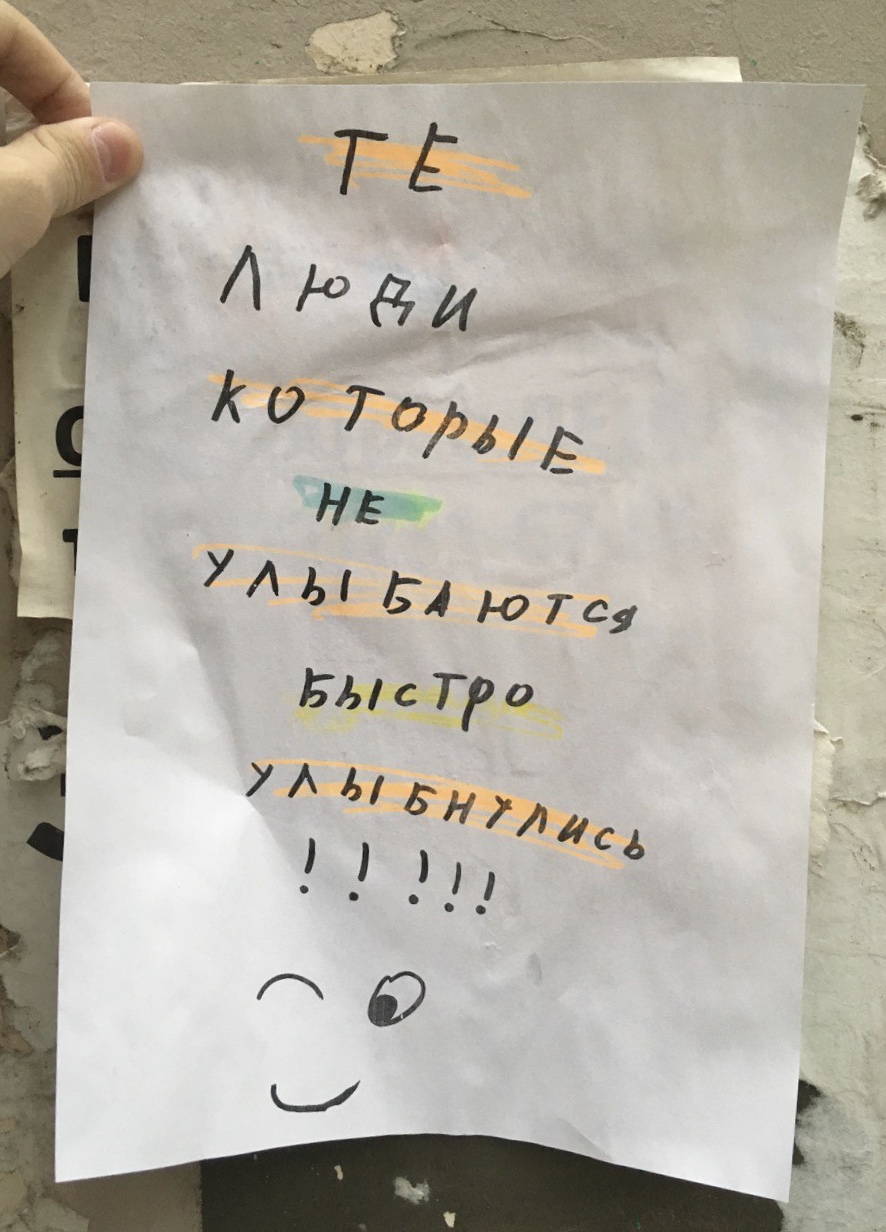 ТЕ
ЛЮДИ
КОТОРЫЕ
НЕ
УЛЫБАЮТСЯ
БЫСТРО
УЛЫБНУЛИСЬ
!!!!!